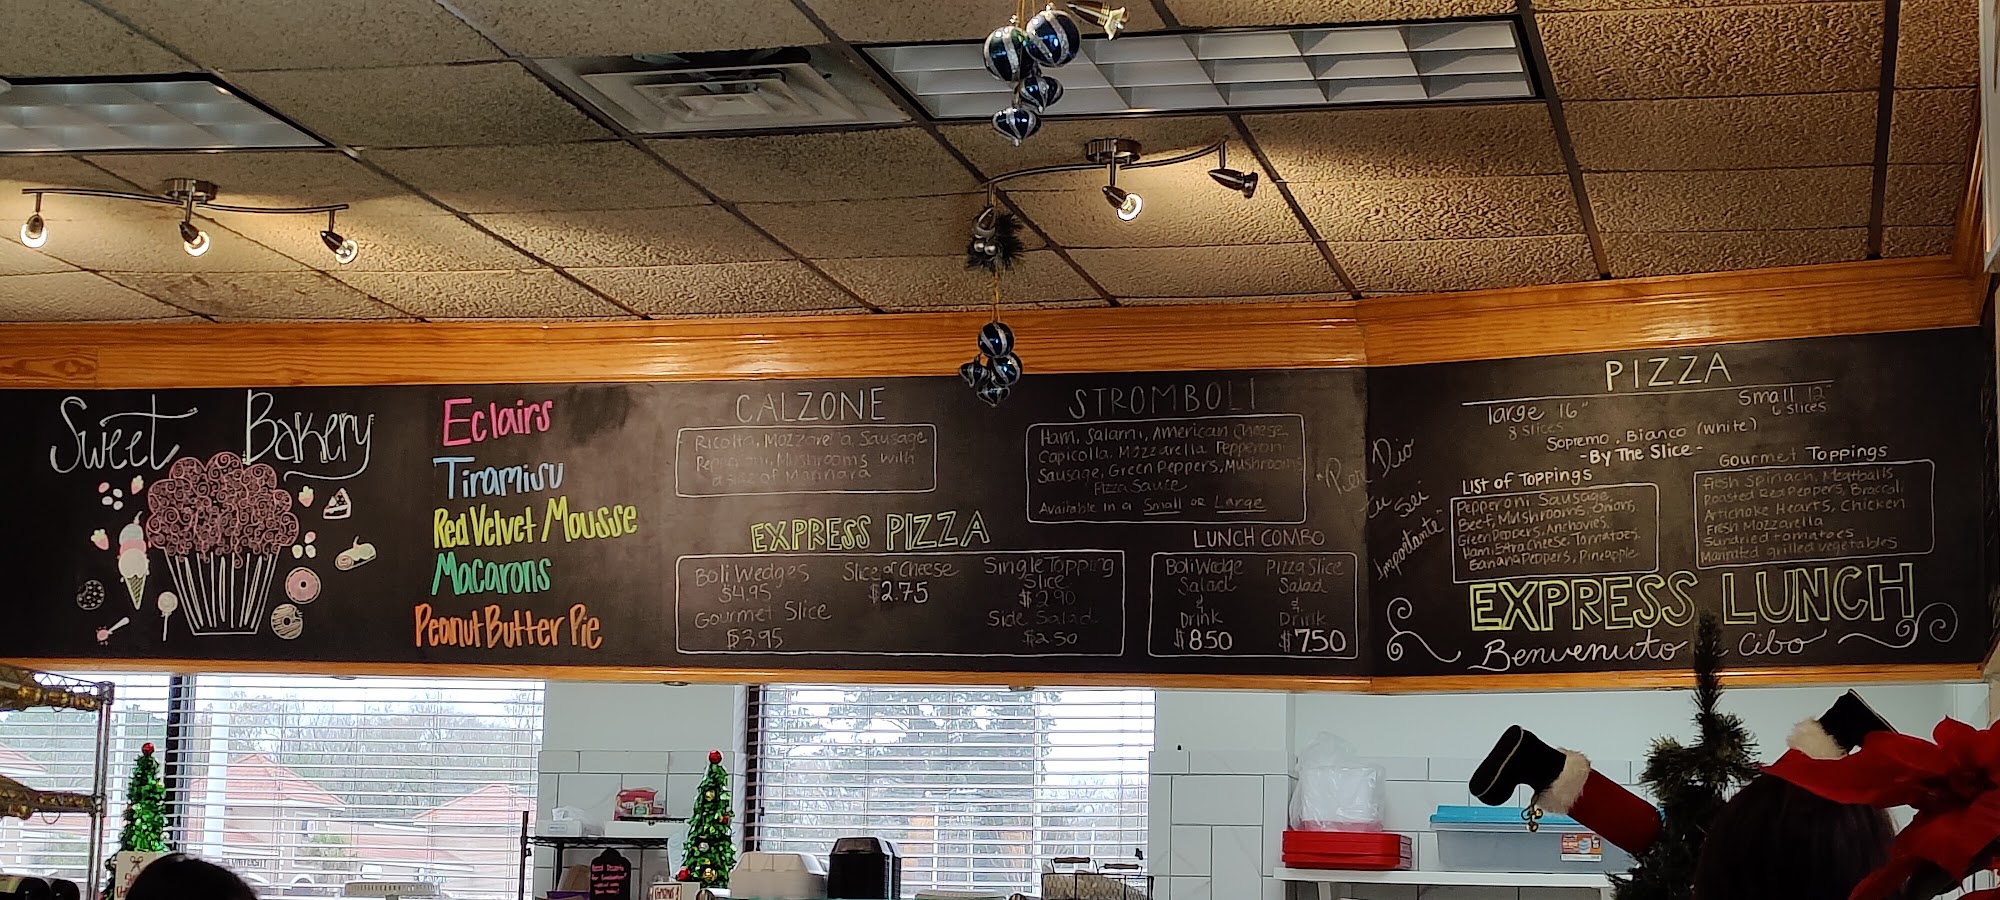 Sweet Bakery
Eclairs
Tiramisu
Red Velvet Mousse
Macarons
Peanut Butter Pie
CALZONE
Ricotta, Mozzarella, Sausage
Pepperoni, Mushrooms with
a side of Marinara
EXPRESS PIZZA
Boli Wedges
$4.95
Slice of Cheese
$2.75
Single Topping
Slice
$2.90
Gourmet Slice
$3.95
Side Salad
$2.50
STROMBOLI
Ham, Salami, American Cheese,
Capicolla, Mozzarella Pepperoni
Sausage, Green Peppers, Mushrooms
Pizza Sauce
Available in a Small or Large
LUNCH COMBO
Boli Wedge
Salad
&
Drink
$8.50
Pizza Slice
Salad
&
Drink
$7.50
"Per Dio
tu Sei
Importante"
PIZZA
large 16"
8 slices
Small 12"
6 slices
Sopremo, Bianco (white)
- By The Slice -
List of Toppings
Pepperoni Sausage,
Beef, Mushrooms, Onions,
Green Peppers, Anchovies,
Ham, Extra Cheese, Tomatoes,
Banana Peppers, Pineapple
Gourmet Toppings
Fresh Spinach, Meatballs
Roasted Red Peppers, Broccoli
Artichoke Hearts, Chicken
Fresh Mozzarella
Sundried tomatoes
Marinated grilled vegetables
EXPRESS LUNCH
Benvenuto Cibo